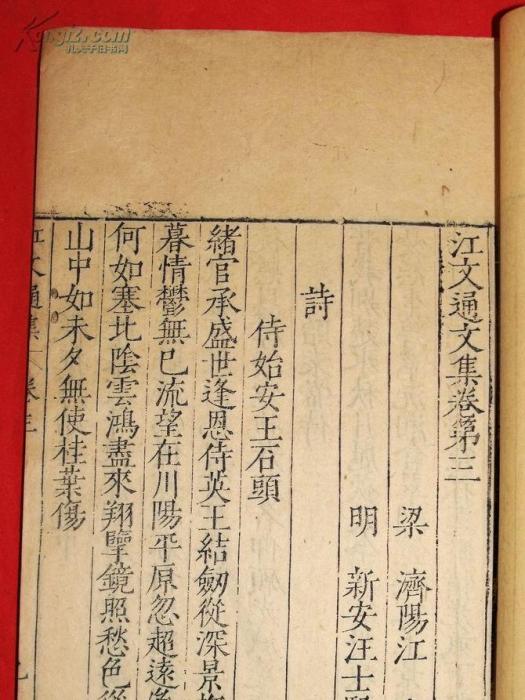 江文通文集卷第三
梁 濟陽江
明 新安汪士
詩
侍始安王石頭
緒官承盛世逢恩侍英王結劒從深景
暮情鬱無已流望在川陽平原忽超遠
何如塞北陰雲鴻盡來翔擥鏡照愁色
山中如未夕無使桂葉傷
江文通集 卷三
Kongfz.com
孔夫子旧书网